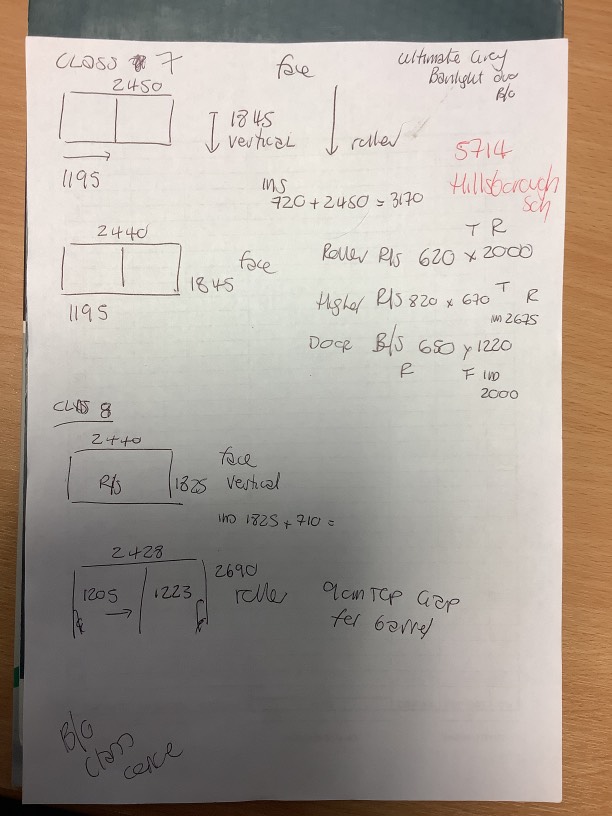 CLASS 7
face
Ultimate Grey
Banlight duo
B/O
2450
1845
vertical
roller
5714
Hillsborough
Sch
1195
ins
720 + 2450 = 3170
2440
face
1845
1195
T R
Roller R/S 620 x 2000
Higher R/S 820 x 670 T R
ins 2675
Door B/S 650 x 1220
R T ins
2000
CLASS 8
2440
R/S
1825
face
vertical
ins 1825 + 710 =
2428
1205
1223
2690
roller
9cm TOP GAP
for barrel
B/O
class